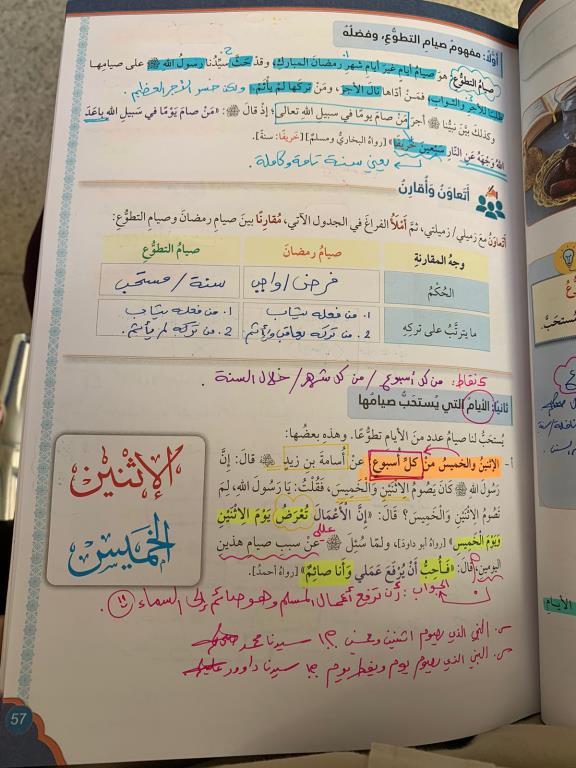 أوّلًا: مفهومُ صيامِ التطوُّعِ، وفضلُهُ
صيامُ التطوُّعِ: هوَ صيامُ أيّامٍ غيرِ أيّامِ شهرِ رمضانَ المباركِ، وقدْ حثَّ سيِّدُنا رسولُ اللهِ ﷺ على صيامِها
طلبًا للأجرِ والثوابِ، فمَنْ أدّاها نالَ الأجرَ، ومَنْ تركَها لمْ يأثَمْ. ولكن خسر الأجر العظيم
وكذلكَ بيَّنَ نبيُّنا ﷺ أجرَ مَنْ صامَ يومًا في سبيلِ اللهِ تعالى؛ إذْ قالَ ﷺ: «مَنْ صامَ يَوْمًا في سَبيلِ اللهِ باعَدَ
اللهُ وَجْهَهُ عَنِ النّارِ سَبْعينَ خَريفًا» [رواهُ البخاريُّ ومسلمٌ] [خَريفًا: سنةً].
يعني سنة تامة وكاملة
أتعاوَنُ وَأُقارِنُ
أتعاوَنُ معَ زميلي/ زميلتي، ثمَّ أملَأُ الفراغَ في الجدولِ الآتي، مُقارِنًا بينَ صيامِ رمضانَ وصيامِ التطوُّعِ:
وجهُ المقارنةِ صيامُ رمضانَ صيامُ التطوُّعِ
الحُكْمُ فرض/واجب سنة/مستحب
ما يترتَّبُ على تركِهِ 1. من فعله يثاب 1. من فعله يثاب
2. من تركه يعاقب وأثم 2. من تركه لم يأثم.
5 نقاط: من كل أسبوع / من كل شهر / خلال السنة.
ثانيًا: الأيامُ التي يُستحَبُّ صيامُها
يُستحَبُّ لنا صيامُ عددٍ منَ الأيامِ تطوُّعًا. وهذهِ بعضُها:
أ- الإثنينُ والخميسُ منْ كلِّ أسبوعٍ: عنْ أسامةَ بنِ زيدٍ قالَ: إنَّ
رسولَ اللهِ ﷺ كانَ يَصُومُ الِاثْنَيْنِ وَالْخَمِيسَ، فَقُلْتُ: يَا رَسُولَ اللهِ، لِمَ
تَصُومُ الِاثْنَيْنِ وَالْخَمِيسَ؟ قالَ: «إِنَّ الْأَعْمَالَ تُعْرَضُ يَوْمَ الِاثْنَيْنِ
وَيَوْمَ الْخَمِيسِ» [رواهُ أبو داودَ]، ولمّا سُئِلَ ﷺ عنْ سببِ صيامِ هذينِ
اليومينِ، قالَ: «فَأُحِبُّ أَنْ يُرْفَعَ عَمَلي وَأَنا صائِمٌ» [رواهُ أحمدُ].
الإثنين
الخميس
الجواب: أن ترفع أعمال المسلم وهو صائم إلى السماء
س. النبي الذي يصوم اثنين وخميس ؟ جـ/ سيدنا محمد
س. النبي الذي يصوم يوم ويفطر يوم جـ/ سيدنا داوود
57